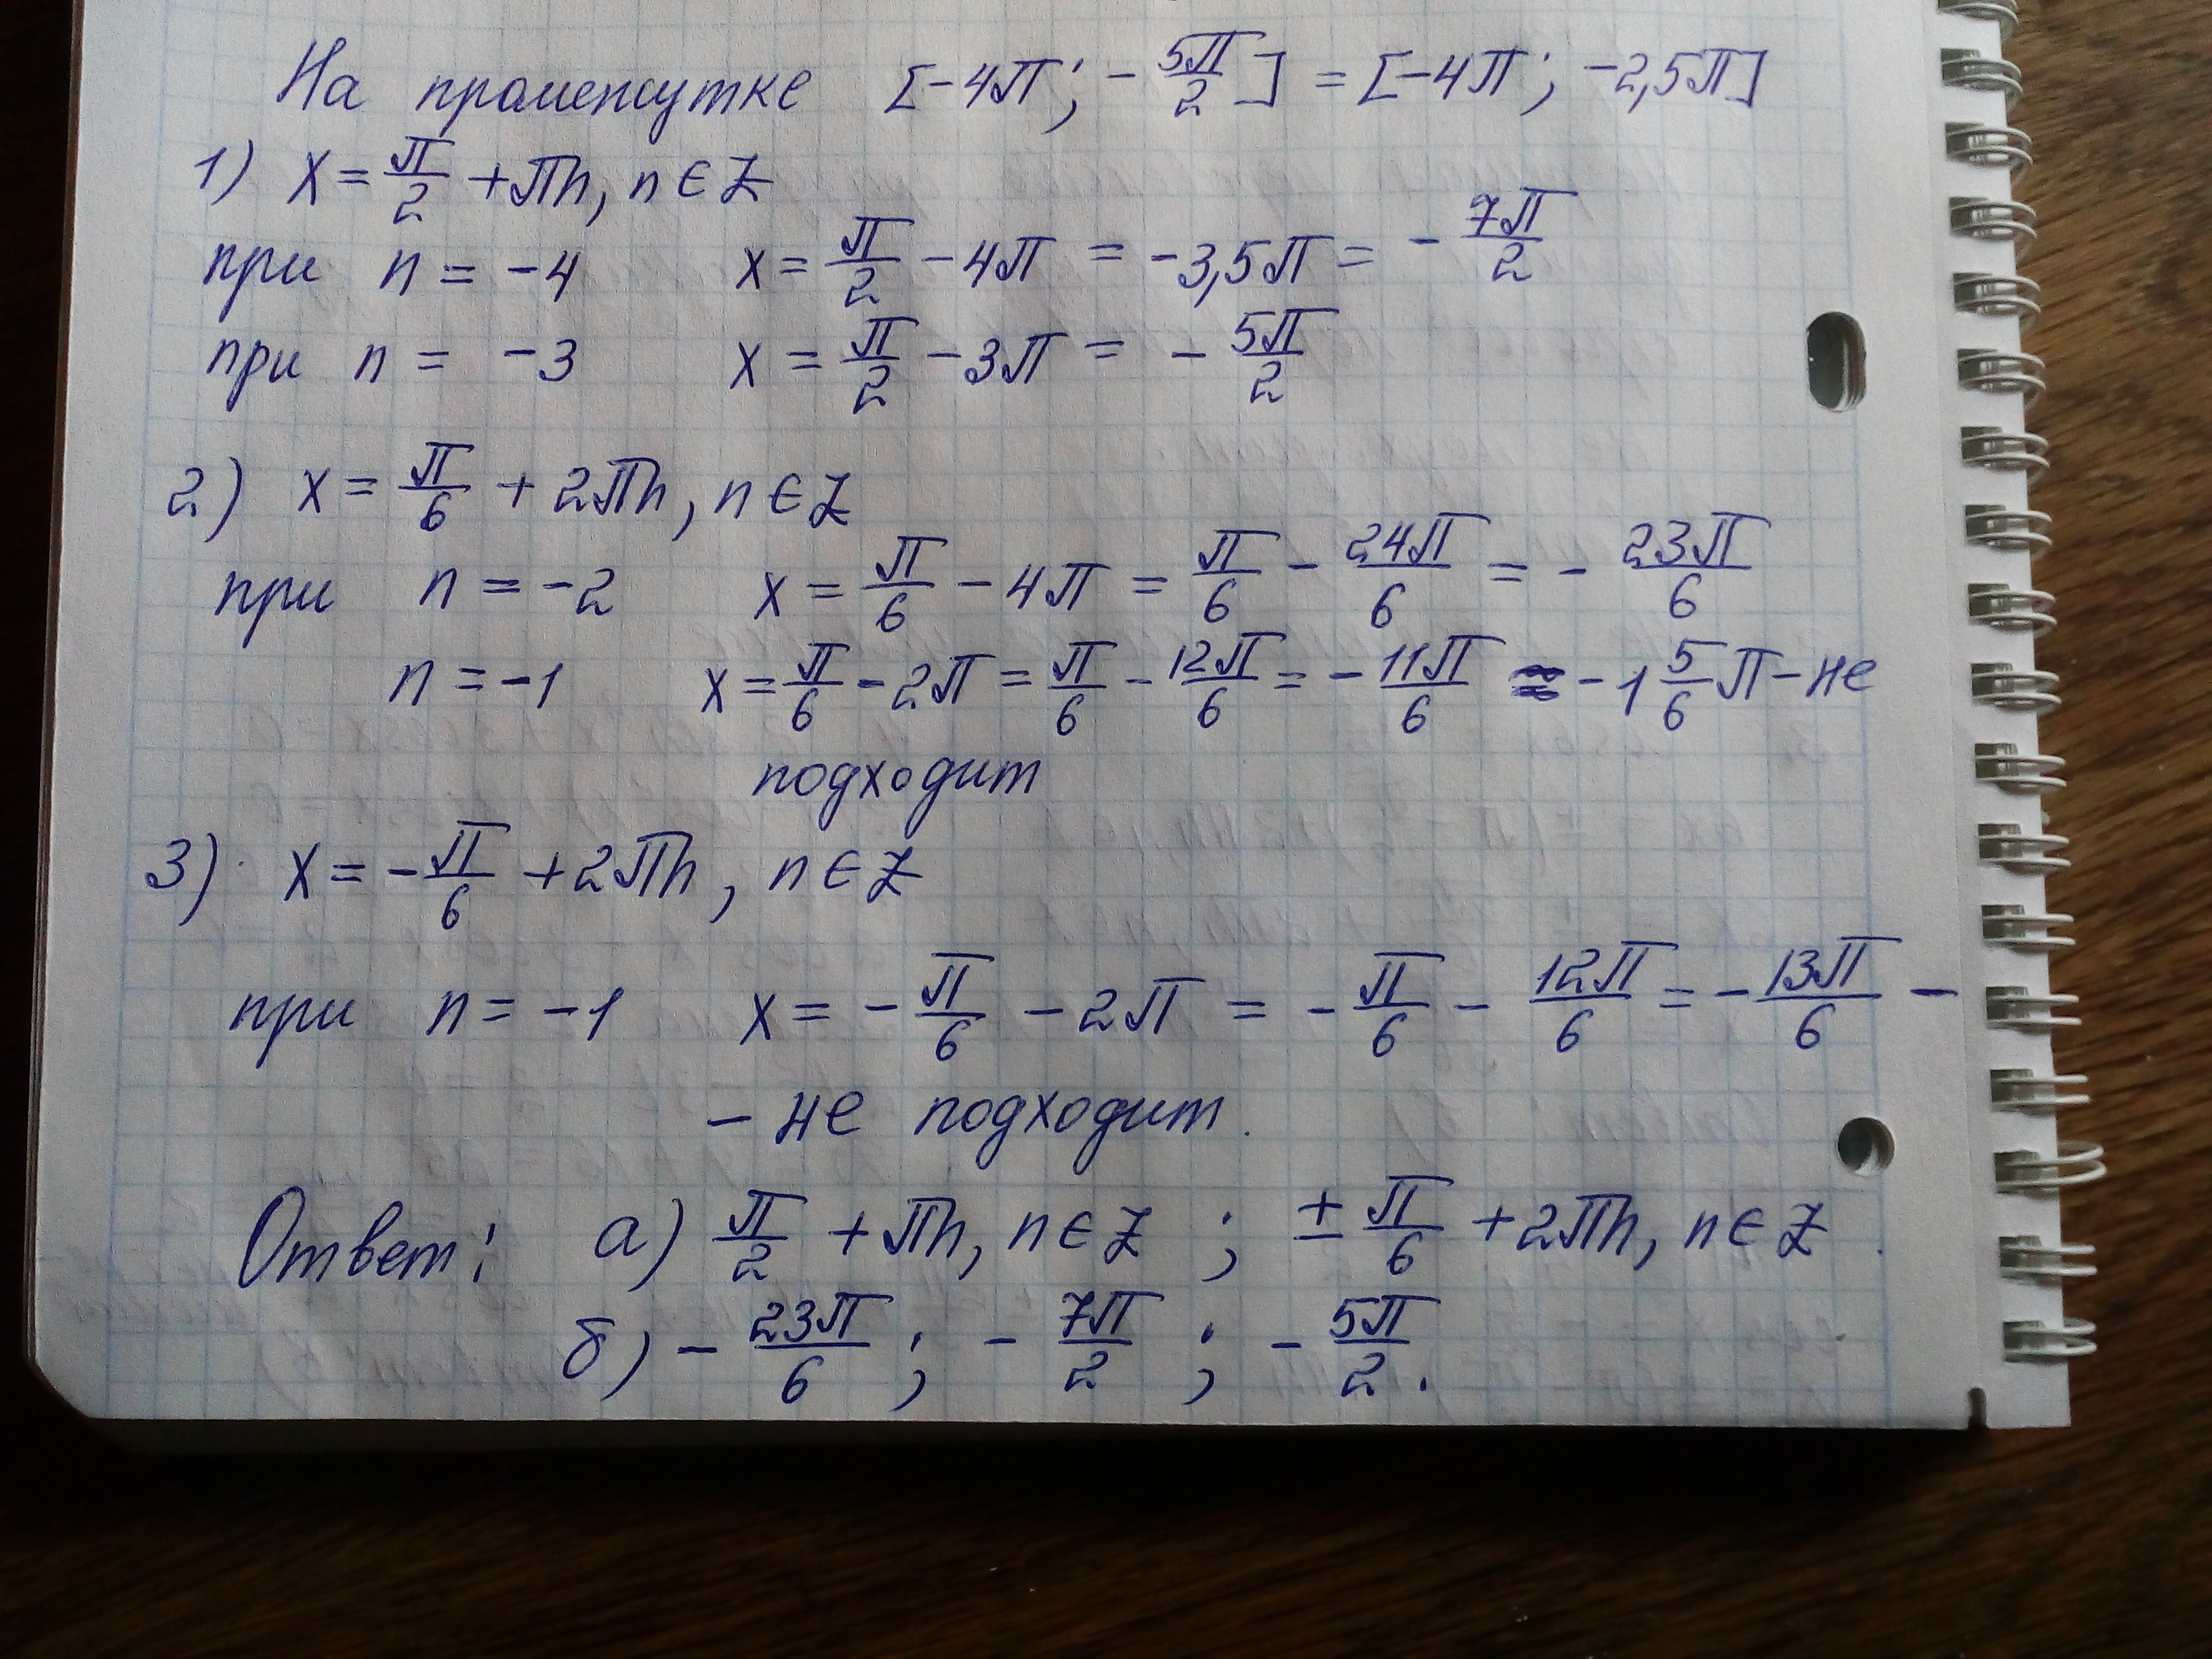 На промежутке [-4π; -5π/2] = [-4π; -2,5π]
1) x = π/2 + πn, n ∈ Z
при n = -4 x = π/2 - 4π = -3,5π = -7π/2
при n = -3 x = π/2 - 3π = -5π/2
2) x = π/6 + 2πn, n ∈ Z
при n = -2 x = π/6 - 4π = π/6 - 24π/6 = -23π/6
n = -1 x = π/6 - 2π = π/6 - 12π/6 = -11π/6 = -1 5/6 π - не
подходит
3) x = -π/6 + 2πn, n ∈ Z
при n = -1 x = -π/6 - 2π = -π/6 - 12π/6 = -13π/6 -
- не подходит.
Ответ: а) π/2 + πn, n ∈ Z ; ± π/6 + 2πn, n ∈ Z.
б) -23π/6 ; -7π/2 ; -5π/2.